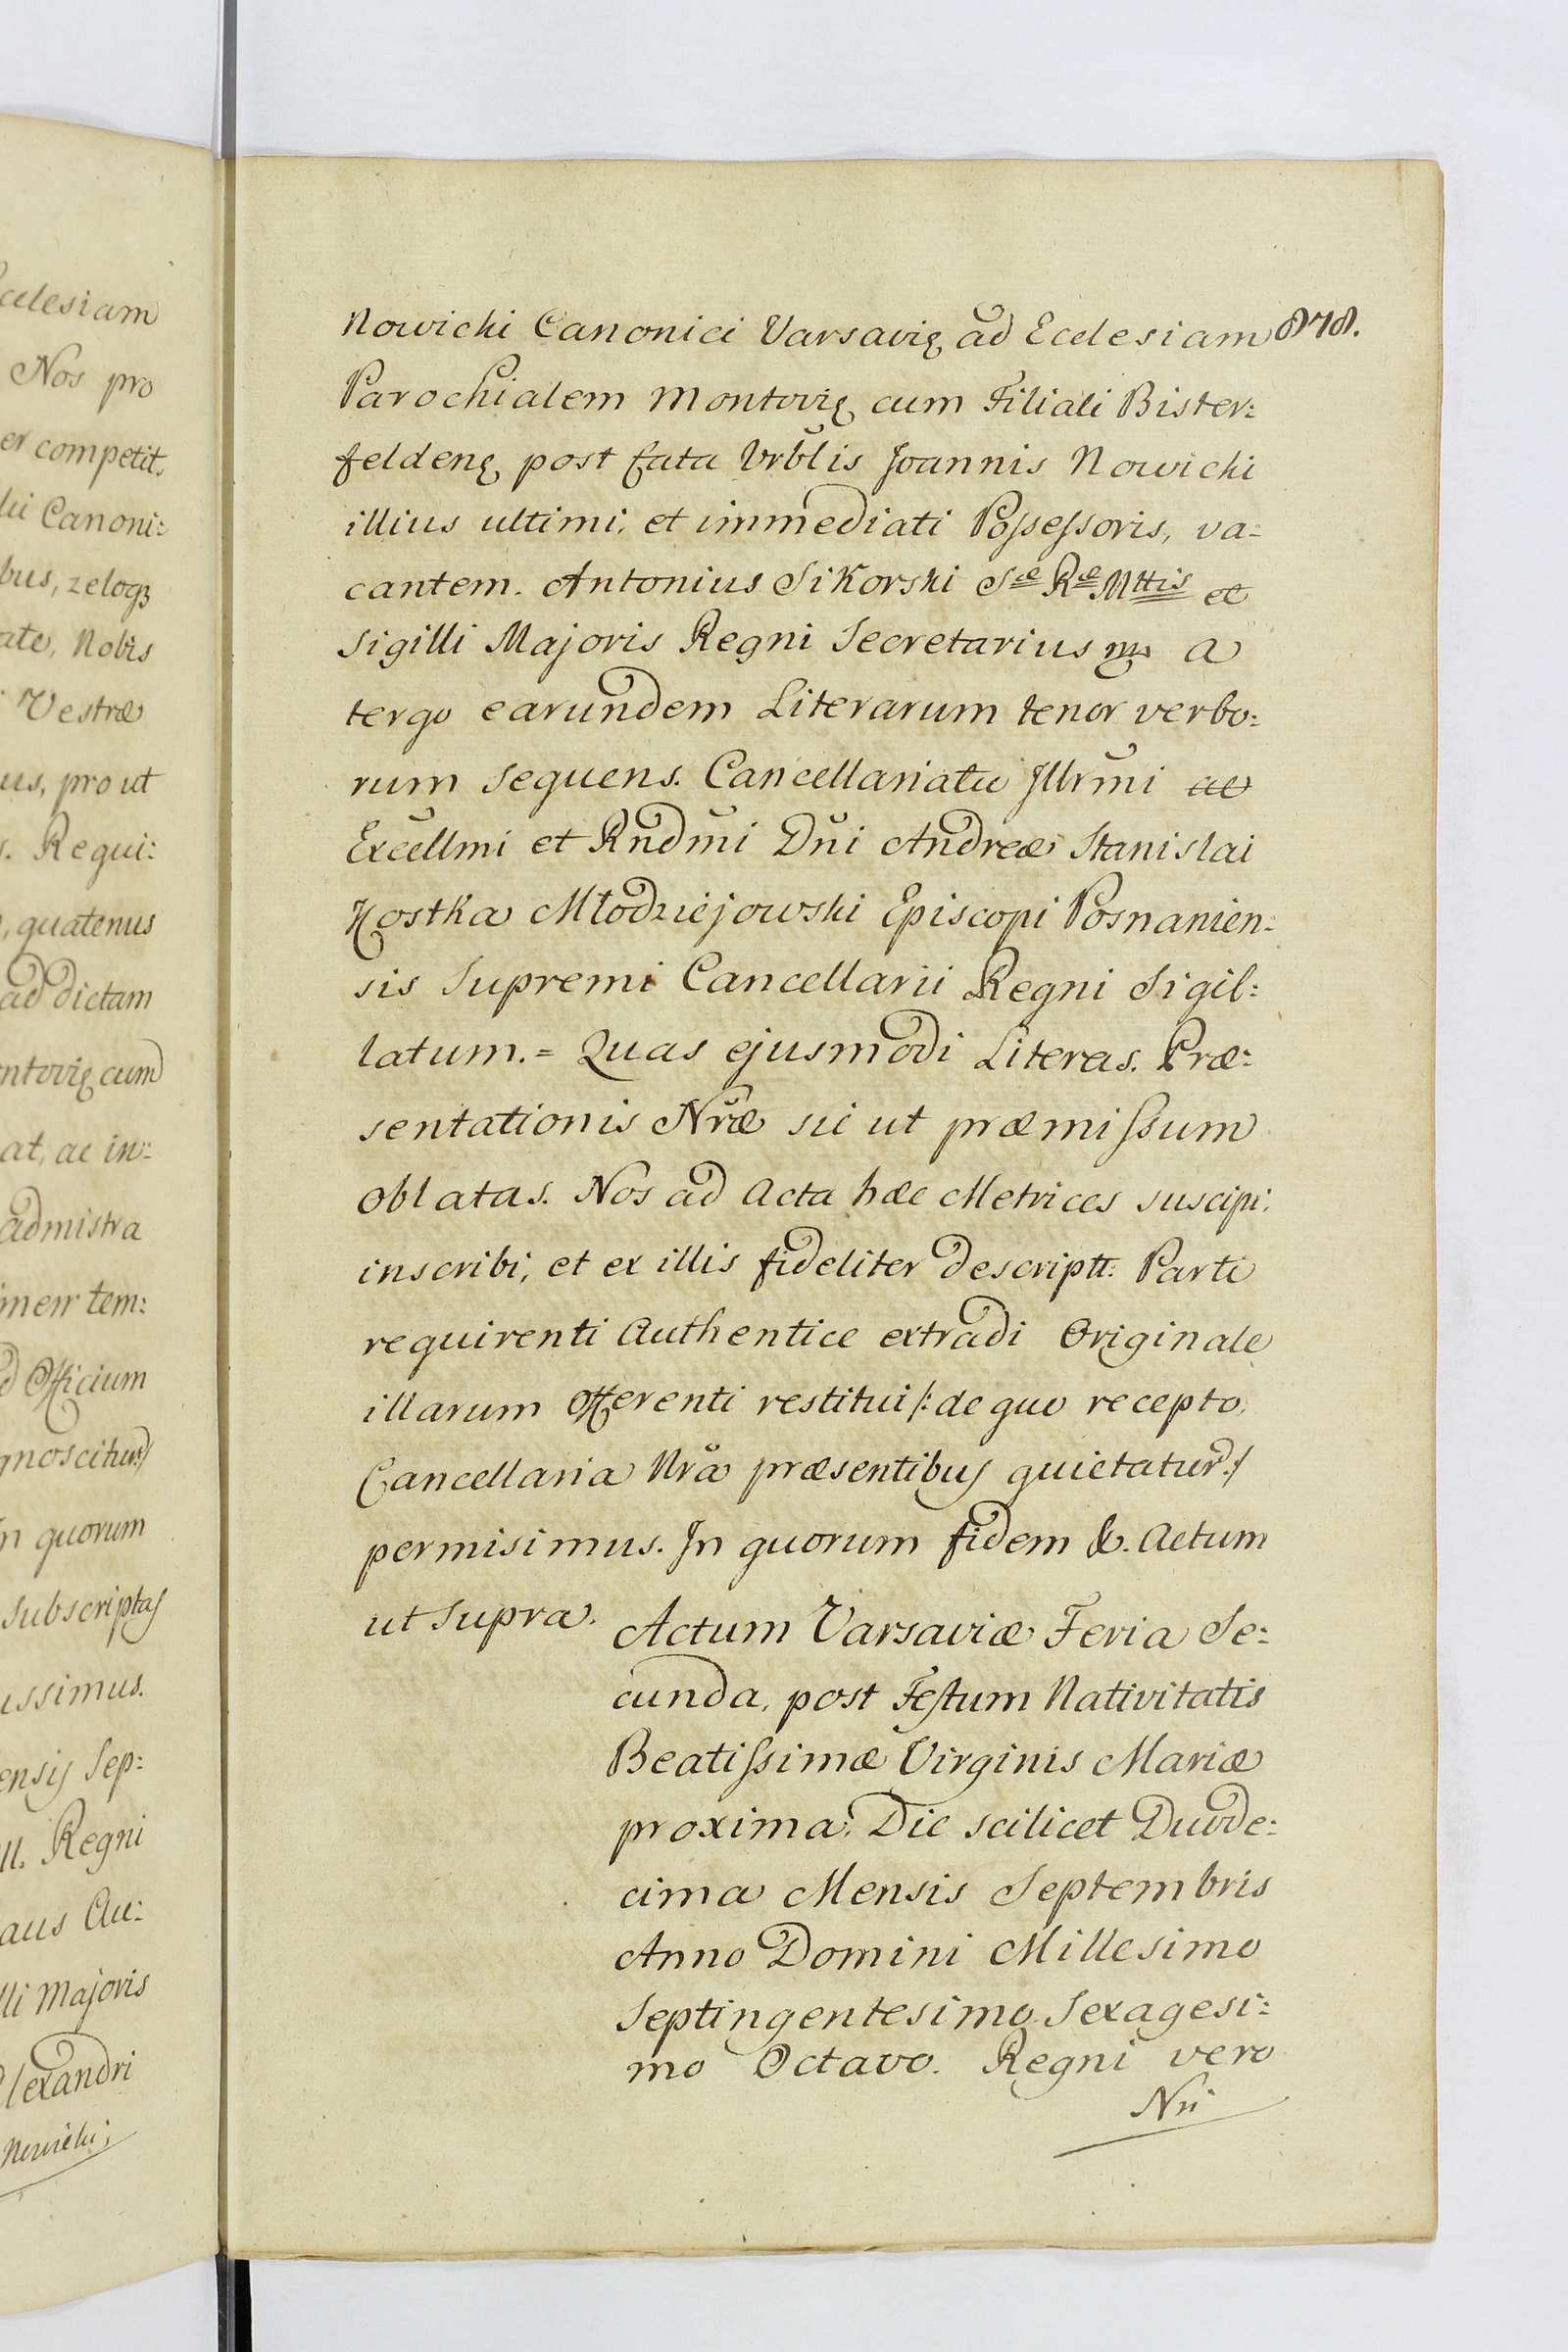 celesiam
Nos pro
er competit.
ki Canoni:
bus, zeloq3
ate, Nobis
Vestræ
us, prout
s. Requi:
, quatenus
ad dictam
ntovię cum
at, ac in:
admistra
imen tem:
d Officium
gnoscitur:/
In quorum
subscriptas
ussimus.
ensis Sep:
ll. Regni
aus Au:
lli Majoris
lexandri
Nowichi;
878.
Nowichi Canonici Varsavię ad Ecclesiam
Parochialem Montovię cum Filiali Bister:
feldenę post fata Vrblis Joannis Nowichi
illius ultimi, et immediati Possessoris, va:
cantem. Antonius Sikorski Sæ Ræ Mttis et
Sigilli Majoris Regni Secretarius mp A
tergo earundem Literarum tenor verbo:
rum sequens. Cancellariatu Jllrmi ac
Excellmi et Rndmi Dni Andreæ Stanislai
Kostka Młodziejowski Episcopi Posnanien:
sis Supremi Cancellarii Regni Sigil:
latum. = Quas ejusmodi Literas. Præ:
sentationis Nræ sic ut præmissum
oblatas. Nos ad Acta hæc Metrices suscipi,
inscribi, et ex illis fideliter descriptt: Parti
requirenti Authentice extradi Originale
illarum Offerenti restitui /: de quo recepto,
Cancellaria Nra præsentibus quietatur :/
permisimus. In quorum fidem &. Actum
ut supra.
Actum Varsaviæ Feria Se:
cunda, post Festum Nativitatis
Beatissimæ Virginis Mariæ
proxima, Die scilicet Duode:
cima Mensis Septembris
Anno Domini Millesimo
Septingentesimo Sexagesi:
mo Octavo. Regni vero
Nri